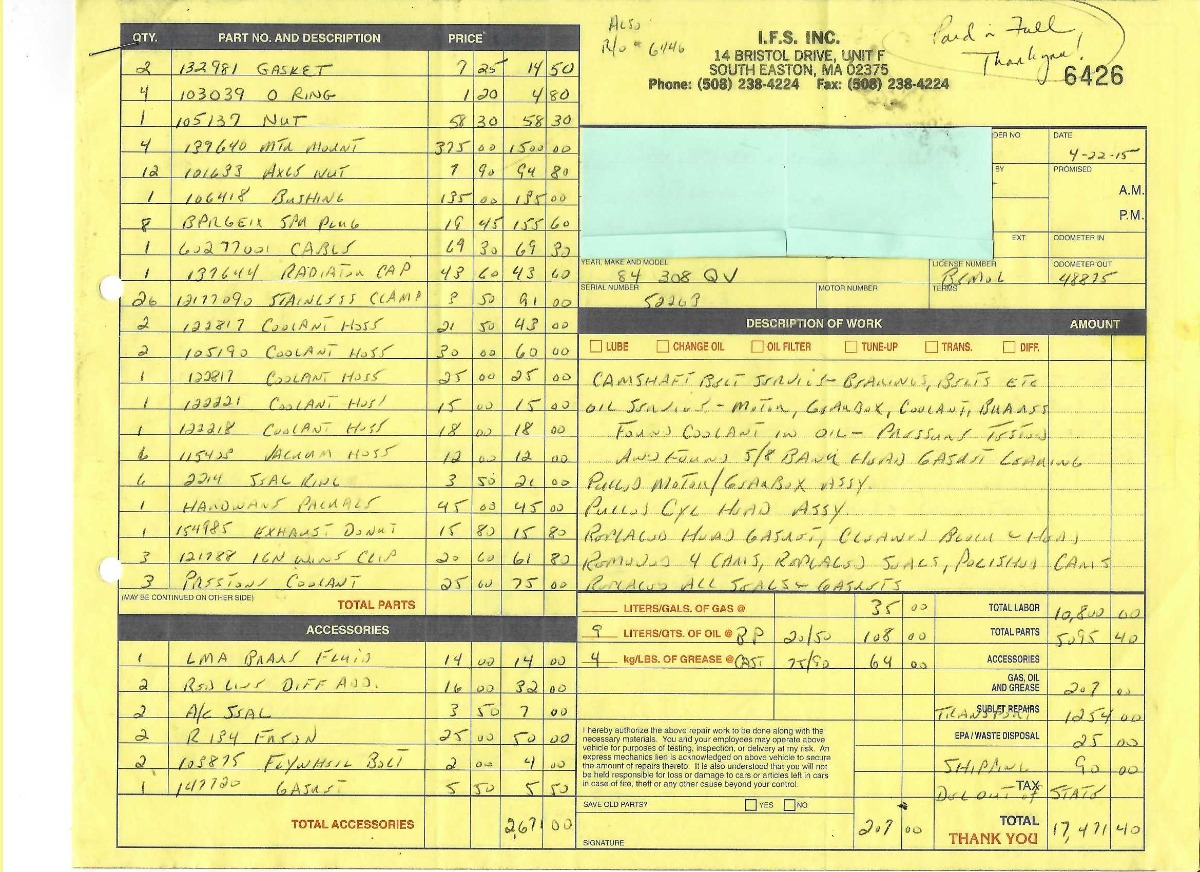 ALSO
R/O # 6446
I.F.S. INC.
14 BRISTOL DRIVE, UNIT F
SOUTH EASTON, MA 02375
Phone: (508) 238-4224 Fax: (508) 238-4224
Paid in Full
Thank you!
6426
QTY. PART NO. AND DESCRIPTION PRICE
2 132981 GASKET 7 25 14 50
4 103039 O RING 1 20 4 80
1 105137 NUT 58 30 58 30
4 139640 MTR MOUNT 375 00 1500 00
12 101633 AXLE NUT 7 90 94 80
1 106418 BUSHING 135 00 135 00
8 BPR6EIX SPK PLUG 19 45 155 60
1 60277001 CABLE 69 30 69 30
1 137644 RADIATOR CAP 43 60 43 60
26 12177090 STAINLESS CLAMP 3 50 91 00
2 122817 COOLANT HOSE 21 50 43 00
2 105190 COOLANT HOSE 30 00 60 00
1 122817 COOLANT HOSE 25 00 25 00
1 122221 COOLANT HOSE 15 00 15 00
1 122218 COOLANT HOSE 18 00 18 00
115428 VACUUM HOSE 12 00 12 00
6 2214 SEAL RING 3 50 21 00
1 HARDWARE PACKAGE 45 00 45 00
1 154985 EXHAUST DONUT 15 80 15 80
3 121788 IGN WIRE CLIP 20 60 61 80
3 PRESTONE COOLANT 25 00 75 00
(MAY BE CONTINUED ON OTHER SIDE)
TOTAL PARTS
ACCESSORIES
1 LMA BRAKE FLUID 14 00 14 00
2 RED LINE DIFF ADD. 16 00 32 00
2 A/C SEAL 3 50 7 00
2 R134 FREON 25 00 50 00
2 103875 FLYWHEEL BOLT 2 00 4 00
1 147720 GASKET 5 50 5 50
TOTAL ACCESSORIES 2671 00
DER NO
DATE
4-22-15
BY
PROMISED
A.M.
P.M.
EXT
ODOMETER IN
YEAR, MAKE AND MODEL
84 308 QV
LICENSE NUMBER
ODOMETER OUT
48825
SERIAL NUMBER
52263
MOTOR NUMBER
TERMS
DESCRIPTION OF WORK AMOUNT
LUBE CHANGE OIL OIL FILTER TUNE-UP TRANS. DIFF.
CAMSHAFT BELT SERVICE - BEARINGS, BELTS ETC
OIL SERVICE - MOTOR, GEARBOX, COOLANT, BRAKES
FOUND COOLANT IN OIL - PRESSURE TESTED
AND FOUND 5/8 BANK HEAD GASKET LEAKING
PULLED MOTOR/GEARBOX ASSY.
PULLED CYL HEAD ASSY
REPLACED HEAD GASKET, CLEANED BLOCK & HEAD
REMOVED 4 CAMS, REPLACED SEALS, POLISHED CAMS
REPLACED ALL SEALS & GASKETS
LITERS/GALS. OF GAS @ 35 00
9 LITERS/QTS. OF OIL @ BP 20/50 108 00
4 kg/LBS. OF GREASE @ CAST 75/90 64 00
TOTAL LABOR 10,800 00
TOTAL PARTS 5095 40
ACCESSORIES
GAS, OIL AND GREASE 207 00
SUBLET REPAIRS
TRANSPORT 1254 00
EPA / WASTE DISPOSAL 25 00
SHIPPING 90 00
TAX
DEL OUT OF STATE
I hereby authorize the above repair work to be done along with the
necessary materials. You and your employees may operate above
vehicle for purposes of testing, inspection, or delivery at my risk. An
express mechanics lien is acknowledged on above vehicle to secure
the amount of repairs thereto. It is also understood that you will not
be held responsible for loss or damage to cars or articles left in cars
in case of fire, theft or any other cause beyond your control.
SAVE OLD PARTS? YES NO
SIGNATURE
207 00
TOTAL 17,471 40
THANK YOU